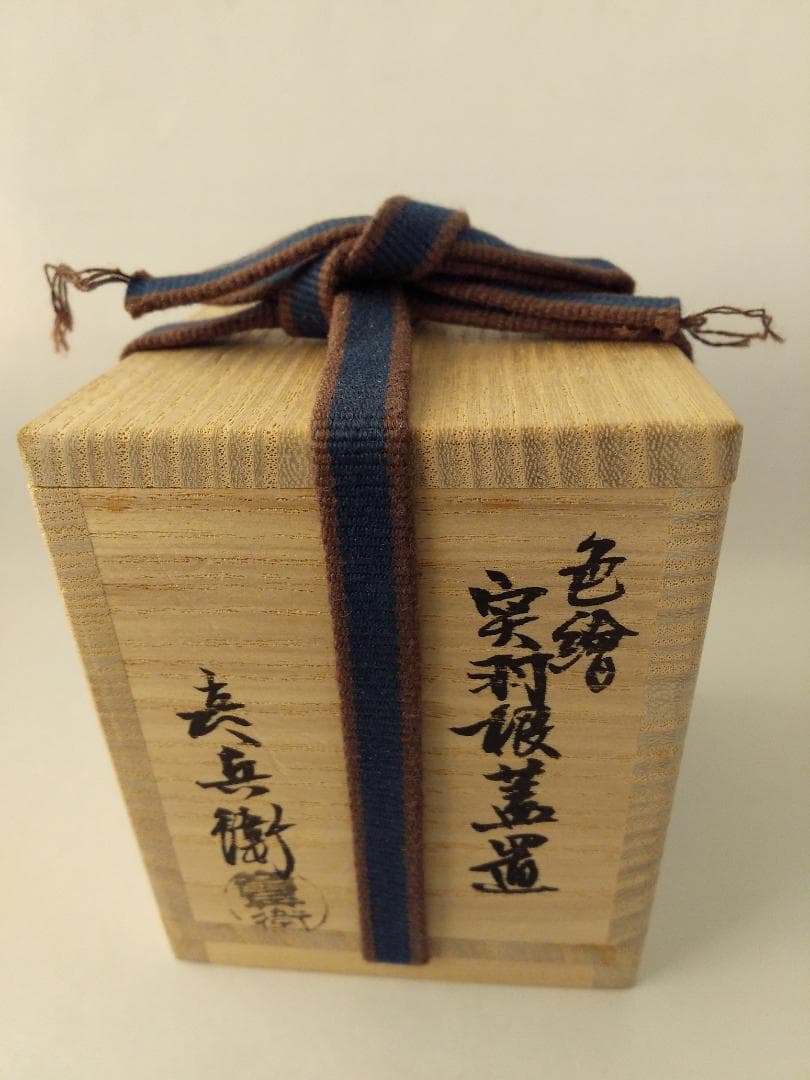 色繪
実羽根蓋置
長兵衛